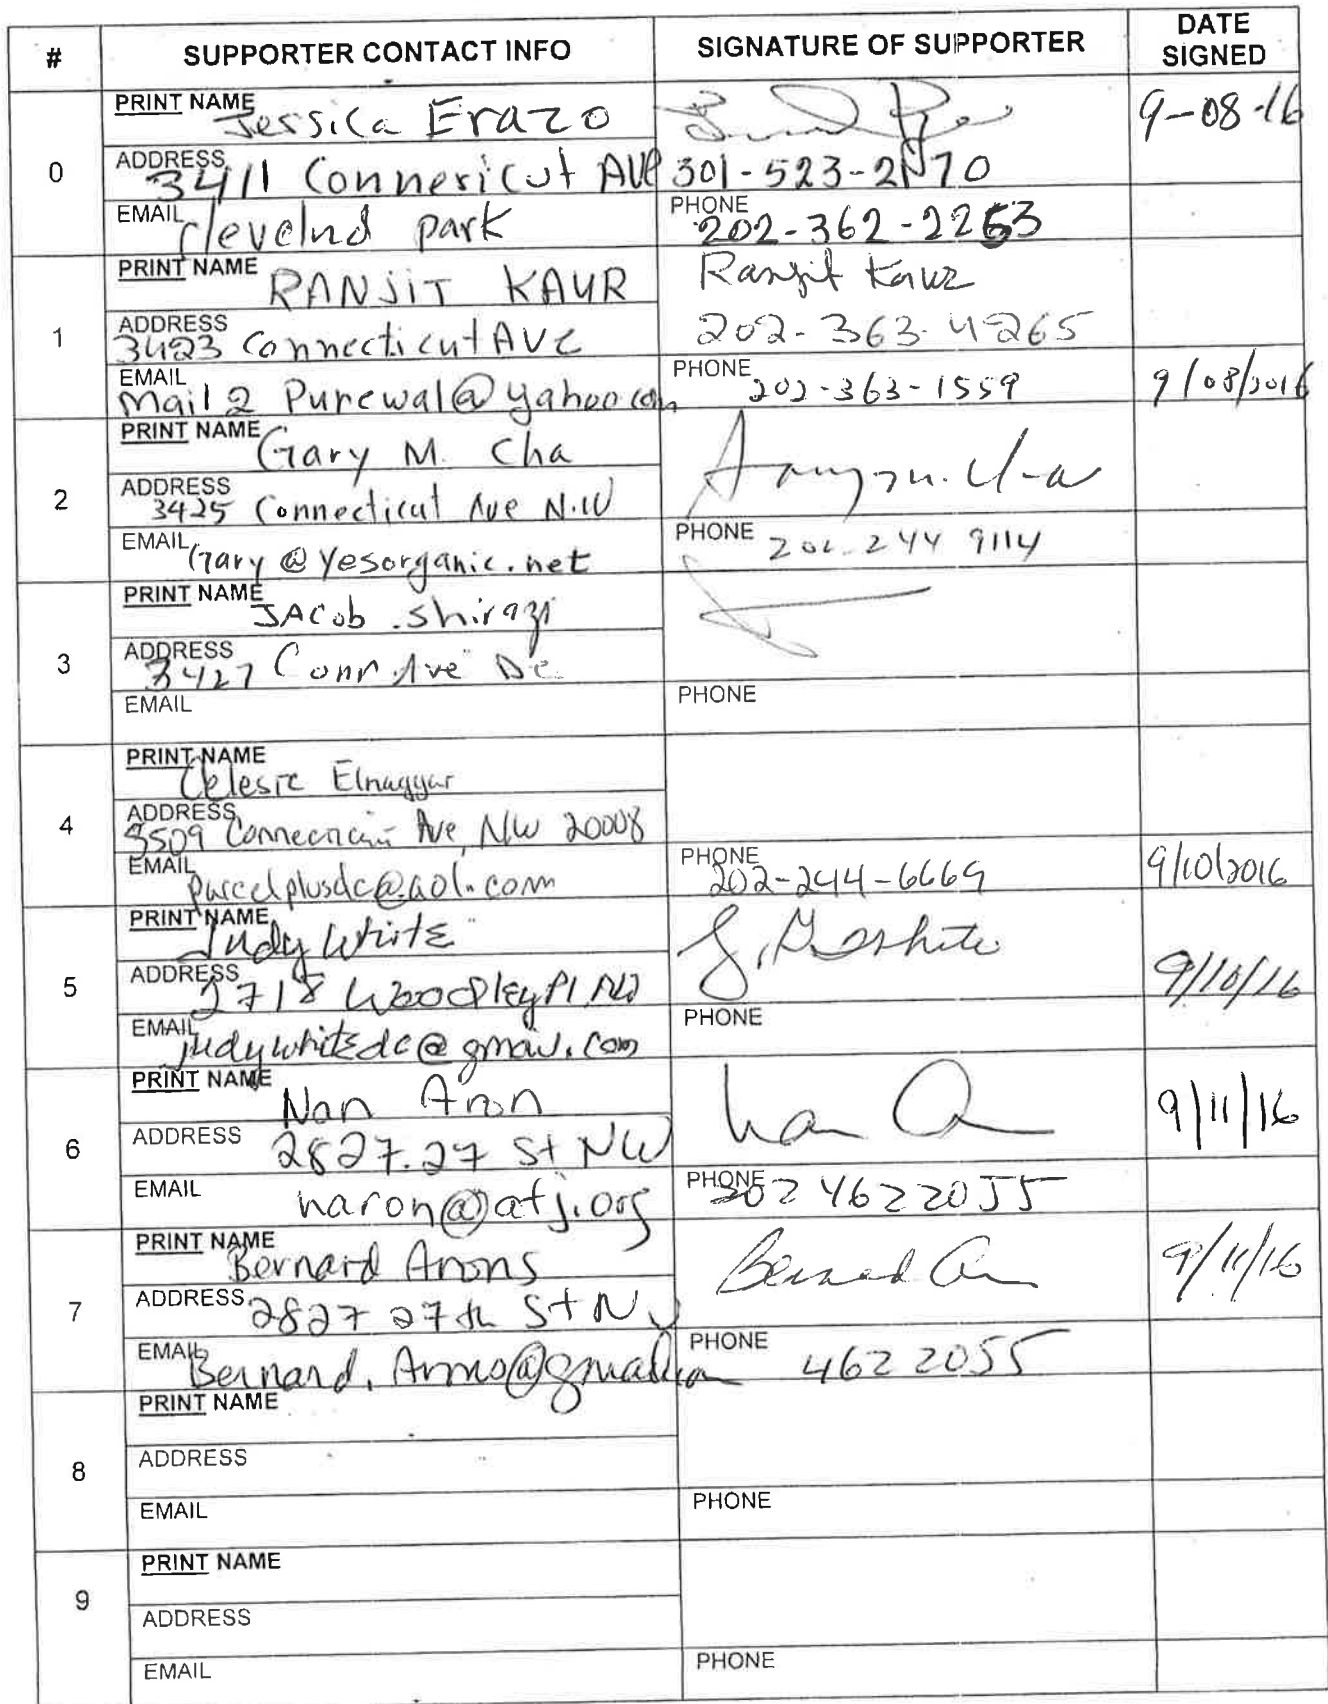 # SUPPORTER CONTACT INFO SIGNATURE OF SUPPORTER DATE SIGNED
0
PRINT NAME Jessica Erazo
9-08-16
ADDRESS 3411 Connericut AVE 301-523-2170
EMAIL clevelnd park PHONE 202-362-2263
1
PRINT NAME RANJIT KAUR Ranjit Kaur
ADDRESS 3423 Connecticut AVE 202-363-4265
EMAIL Mail2Purewal@yahoo.com PHONE 202-363-1559 9/08/2016
2
PRINT NAME Gary M. Cha
ADDRESS 3425 Connecticut Ave N.W
EMAIL Gary@Yesorganic.net PHONE 202-244 9114
3
PRINT NAME JACob Shirazi
ADDRESS 3427 Conn. Ave DC
EMAIL PHONE
4
PRINT NAME Celeste Elnaggar
ADDRESS 3509 Connecticut Ave, NW 20008
EMAIL parcelplusdc@aol.com PHONE 202-244-6669 9/10/2016
5
PRINT NAME Judy White
ADDRESS 2718 Woodley Pl NW 9/10/16
EMAIL judywhitedc@gmail.com PHONE
6
PRINT NAME Nan Aron Nan A 9/11/16
ADDRESS 2827.27 St NW
EMAIL naron@afj.org PHONE 202 462 2055
7
PRINT NAME Bernard Arons Bernard 9/11/16
ADDRESS 2827 27th St NW
EMAIL Bernard.Arons@gmail.com PHONE 462 2055
8
PRINT NAME
ADDRESS
EMAIL PHONE
9
PRINT NAME
ADDRESS
EMAIL PHONE